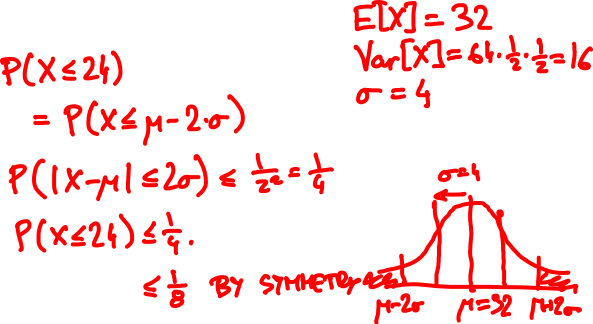 E[X] = 32
Var[X] = 64·1/2·1/2 = 16
σ = 4
P(X ≤ 24)
= P(X ≤ μ - 2·σ)
P(|X-μ| ≤ 2σ) ≤ 1/2² = 1/4
P(X ≤ 24) ≤ 1/4.
≤ 1/8 BY SYMMETRY
σ=4
μ-2σ μ=32 μ+2σ